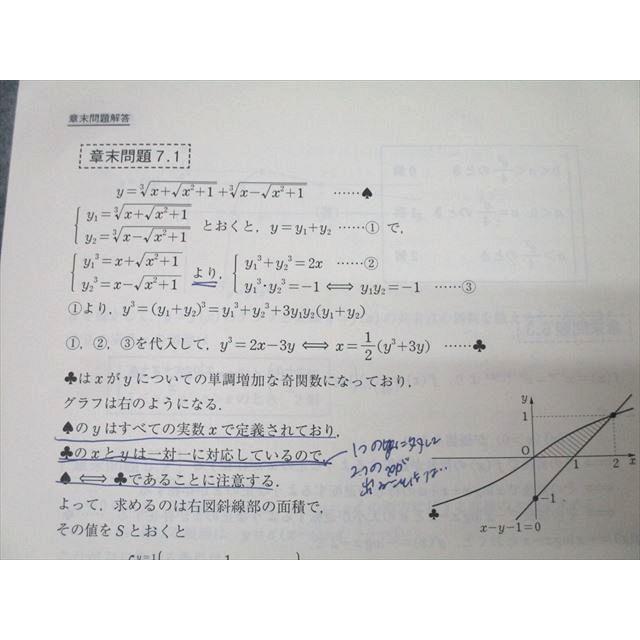 章末問題解答
章末問題 7.1
y=∛(x+√(x²+1))+∛(x−√(x²+1)) ……♠
{ y₁=∛(x+√(x²+1))
y₂=∛(x−√(x²+1)) とおくと，y=y₁+y₂ ……① で，
{ y₁³=x+√(x²+1)
y₂³=x−√(x²+1) より， { y₁³+y₂³=2x ……②
y₁³・y₂³=−1 ⟺ y₁y₂=−1 ……③
①より，y³=(y₁+y₂)³=y₁³+y₂³+3y₁y₂(y₁+y₂)
①，②，③を代入して，y³=2x−3y ⟺ x=1/2(y³+3y) ……♣
♣はxがyについての単調増加な奇関数になっており，
グラフは右のようになる．
♠のyはすべての実数xで定義されており，
♣のxとyは一対一に対応しているので，
♠ ⟺ ♣であることに注意する．
よって，求めるのは右図斜線部の面積で，
その値をSとおくと
1つの
2つの
y
1
O
1
2
x
−1
♣
x−y−1=0